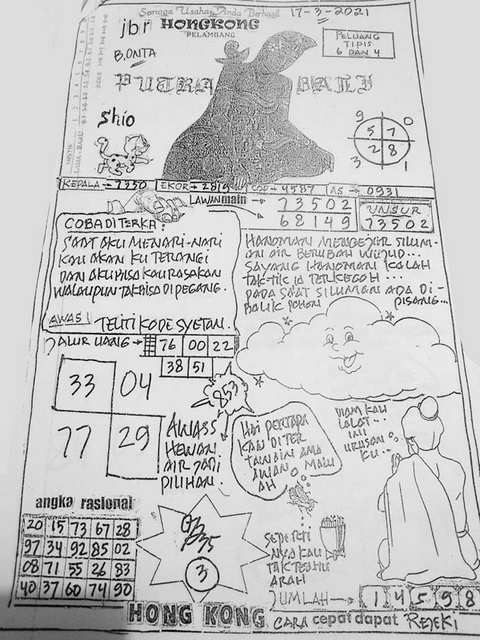 Semoga Usaha Anda Berhasil
17-3-2021
jbr HONGKONG
PELAMBANG
B.ONTA
PELUANG
TIPIS
6 DAN 4
PUTRA BALI
Shio
9 0
5 7
2 8
3 1
KEPALA → 7250 EKOR → 2819 COP → 4587 AS → 0931
LAWAN main → 73502
→ 68149
UNSUR
73502
COBA DITERKA:
SAAT AKU MENARI-NARI
KAU AKAN KU TERANGI
DAN AKU BISA KAU RASAKAN
WALAUPUN TAK BISA DI PEGANG.
AWAS! TELITI KODE SYETAN.
HANOMAN MENGEJAR SILUM-
AN AIR BERUBAH WUJUD...
SAYANG HANOMAN KALAH
TAKTIK IA TERKECOH...
PADA SAAT SILUMAN ADA DI-
BALIK POHON PISANG...
JALUR UANG → 76 00 22
38 51
33 04
77 29
853
AWASS
HEWAN
AIR JADI
PILIHAN.
HAI PERTAPA
KAU DI TER
AWAN MALU
AH
MAU KAU
LALAT...
INI
URUSAN
KU...
angka rasional
20 15 73 67 28
97 34 92 85 02
08 71 55 26 83
40 37 60 74 90
3
SEPERTI
NYA KAU
TAK TENTU
ARAH
JUMLAH → 1 4 5 9 8
HONG KONG CARA cepat dapat REJEKI